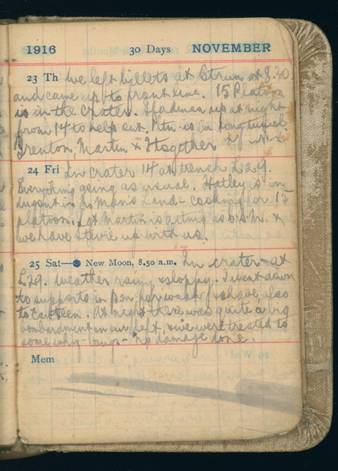 1916 30 Days NOVEMBER
23 Th We left billets at Etrun at 8.30
and came up to front line. 15 Platoon
is in the Crater. Had up at night
from 14 to help out. is in long tunnel.
Brenton, Martin &
24 Fri In Crater 14 at trench L29.
Everything going as usual. Hatley is in
dugout in no Mans Land - cooking for 13
platoon. Martin is acting &
we have Stevie up with us.
25 Sat— New Moon, 8.50 a.m. In crater at
L29. Weather rainy & sloppy. I went down
to supports in p.m. for wash & shave, also
to Canteen. At night there was quite a big
bombardment on our left, & we were treated to
some why-bangs - no damage done.
Mem